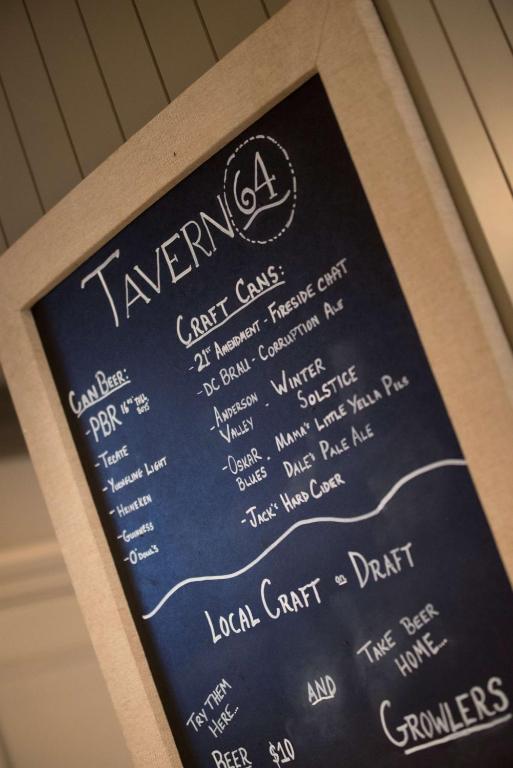 TAVERN 64
CAN BEER:
-PBR 16oz TALL BOYS
-TECATE
-YUENGLING LIGHT
-HEINEKEN
-GUINNESS
-O'DOUL'S
CRAFT CANS:
-21st AMENDMENT - FIRESIDE CHAT
-DC BRAU - CORRUPTION ALE
-ANDERSON VALLEY - WINTER SOLSTICE
-OSKAR BLUES - MAMA'S LITTLE YELLA PILS
DALE'S PALE ALE
-JACK'S HARD CIDER
LOCAL CRAFT on DRAFT
TRY THEM
HERE...
AND
TAKE BEER
HOME...
BEER $10
GROWLERS